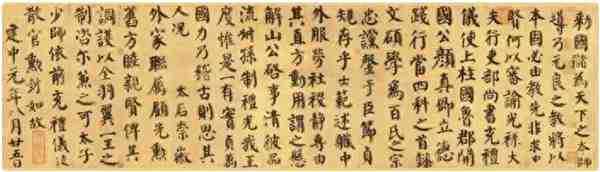 敕國儲為天下之本師
導乃元良之教將以
本固必由教先非求忠
賢何以審諭光祿大
夫行吏部尚書充禮
儀使上柱國魯郡開
國公顏真卿立德
踐行當四科之首懿
文碩學為百氏之宗
忠讜罄于臣節貞
規存乎士範述職中
外服勞社稷靜專由
其直方動用謂之懸
解山公啟事清彼品
流叔孫制禮光我王
度惟是一有實貞萬
國力乃稽古則思其
人況 太后崇徽
外家聯屬顧先勳
舊方睦親賢俾其
調護以全羽翼一王之
制咨爾兼之可太子
少師依前充禮儀使
散官勳封如故
建中元年八月廿五日